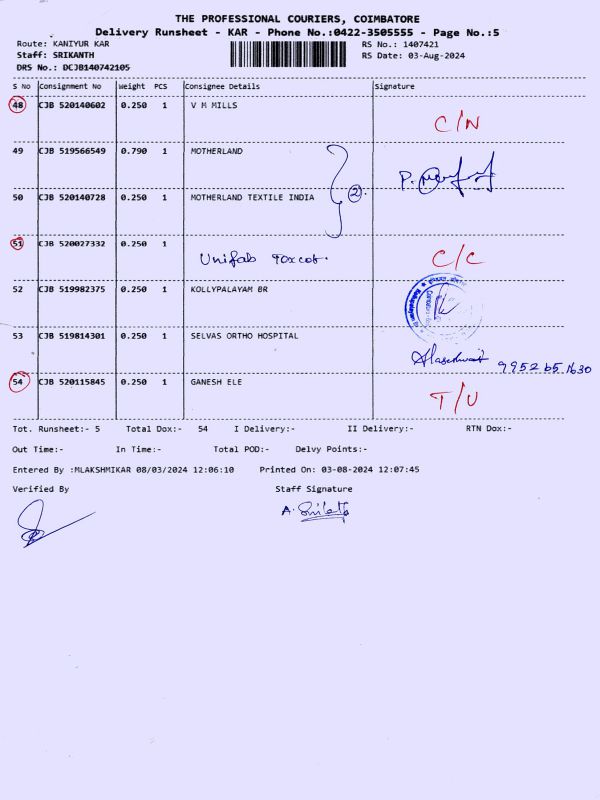 THE PROFESSIONAL COURIERS, COIMBATORE
Delivery Runsheet - KAR - Phone No.:0422-3505555 - Page No.:5
Route: KANIYUR KAR
RS No.: 1407421
Staff: SRIKANTH
RS Date: 03-Aug-2024
DRS No.: DCJB140742105
S No Consignment No Weight PCS Consignee Details Signature
48 CJB 520140602 0.250 1 V M MILLS C/N
49 CJB 519566549 0.790 1 MOTHERLAND
2.
50 CJB 520140728 0.250 1 MOTHERLAND TEXTILE INDIA
51 CJB 520027332 0.250 1 Unifab C/C
52 CJB 519982375 0.250 1 KOLLYPALAYAM BR
53 CJB 519814301 0.250 1 SELVAS ORTHO HOSPITAL
9952651630
54 CJB 520115845 0.250 1 GANESH ELE T/U
Tot. Runsheet:- 5 Total Dox:- 54 I Delivery:- II Delivery:- RTN Dox:-
Out Time:- In Time:- Total POD:- Delvy Points:-
Entered By :MLAKSHMIKAR 08/03/2024 12:06:10 Printed On: 03-08-2024 12:07:45
Verified By Staff Signature